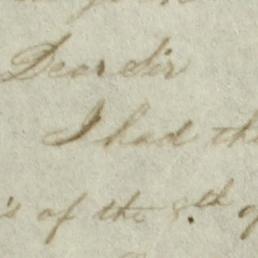 Dear Sir
I had th
's of the 8th of